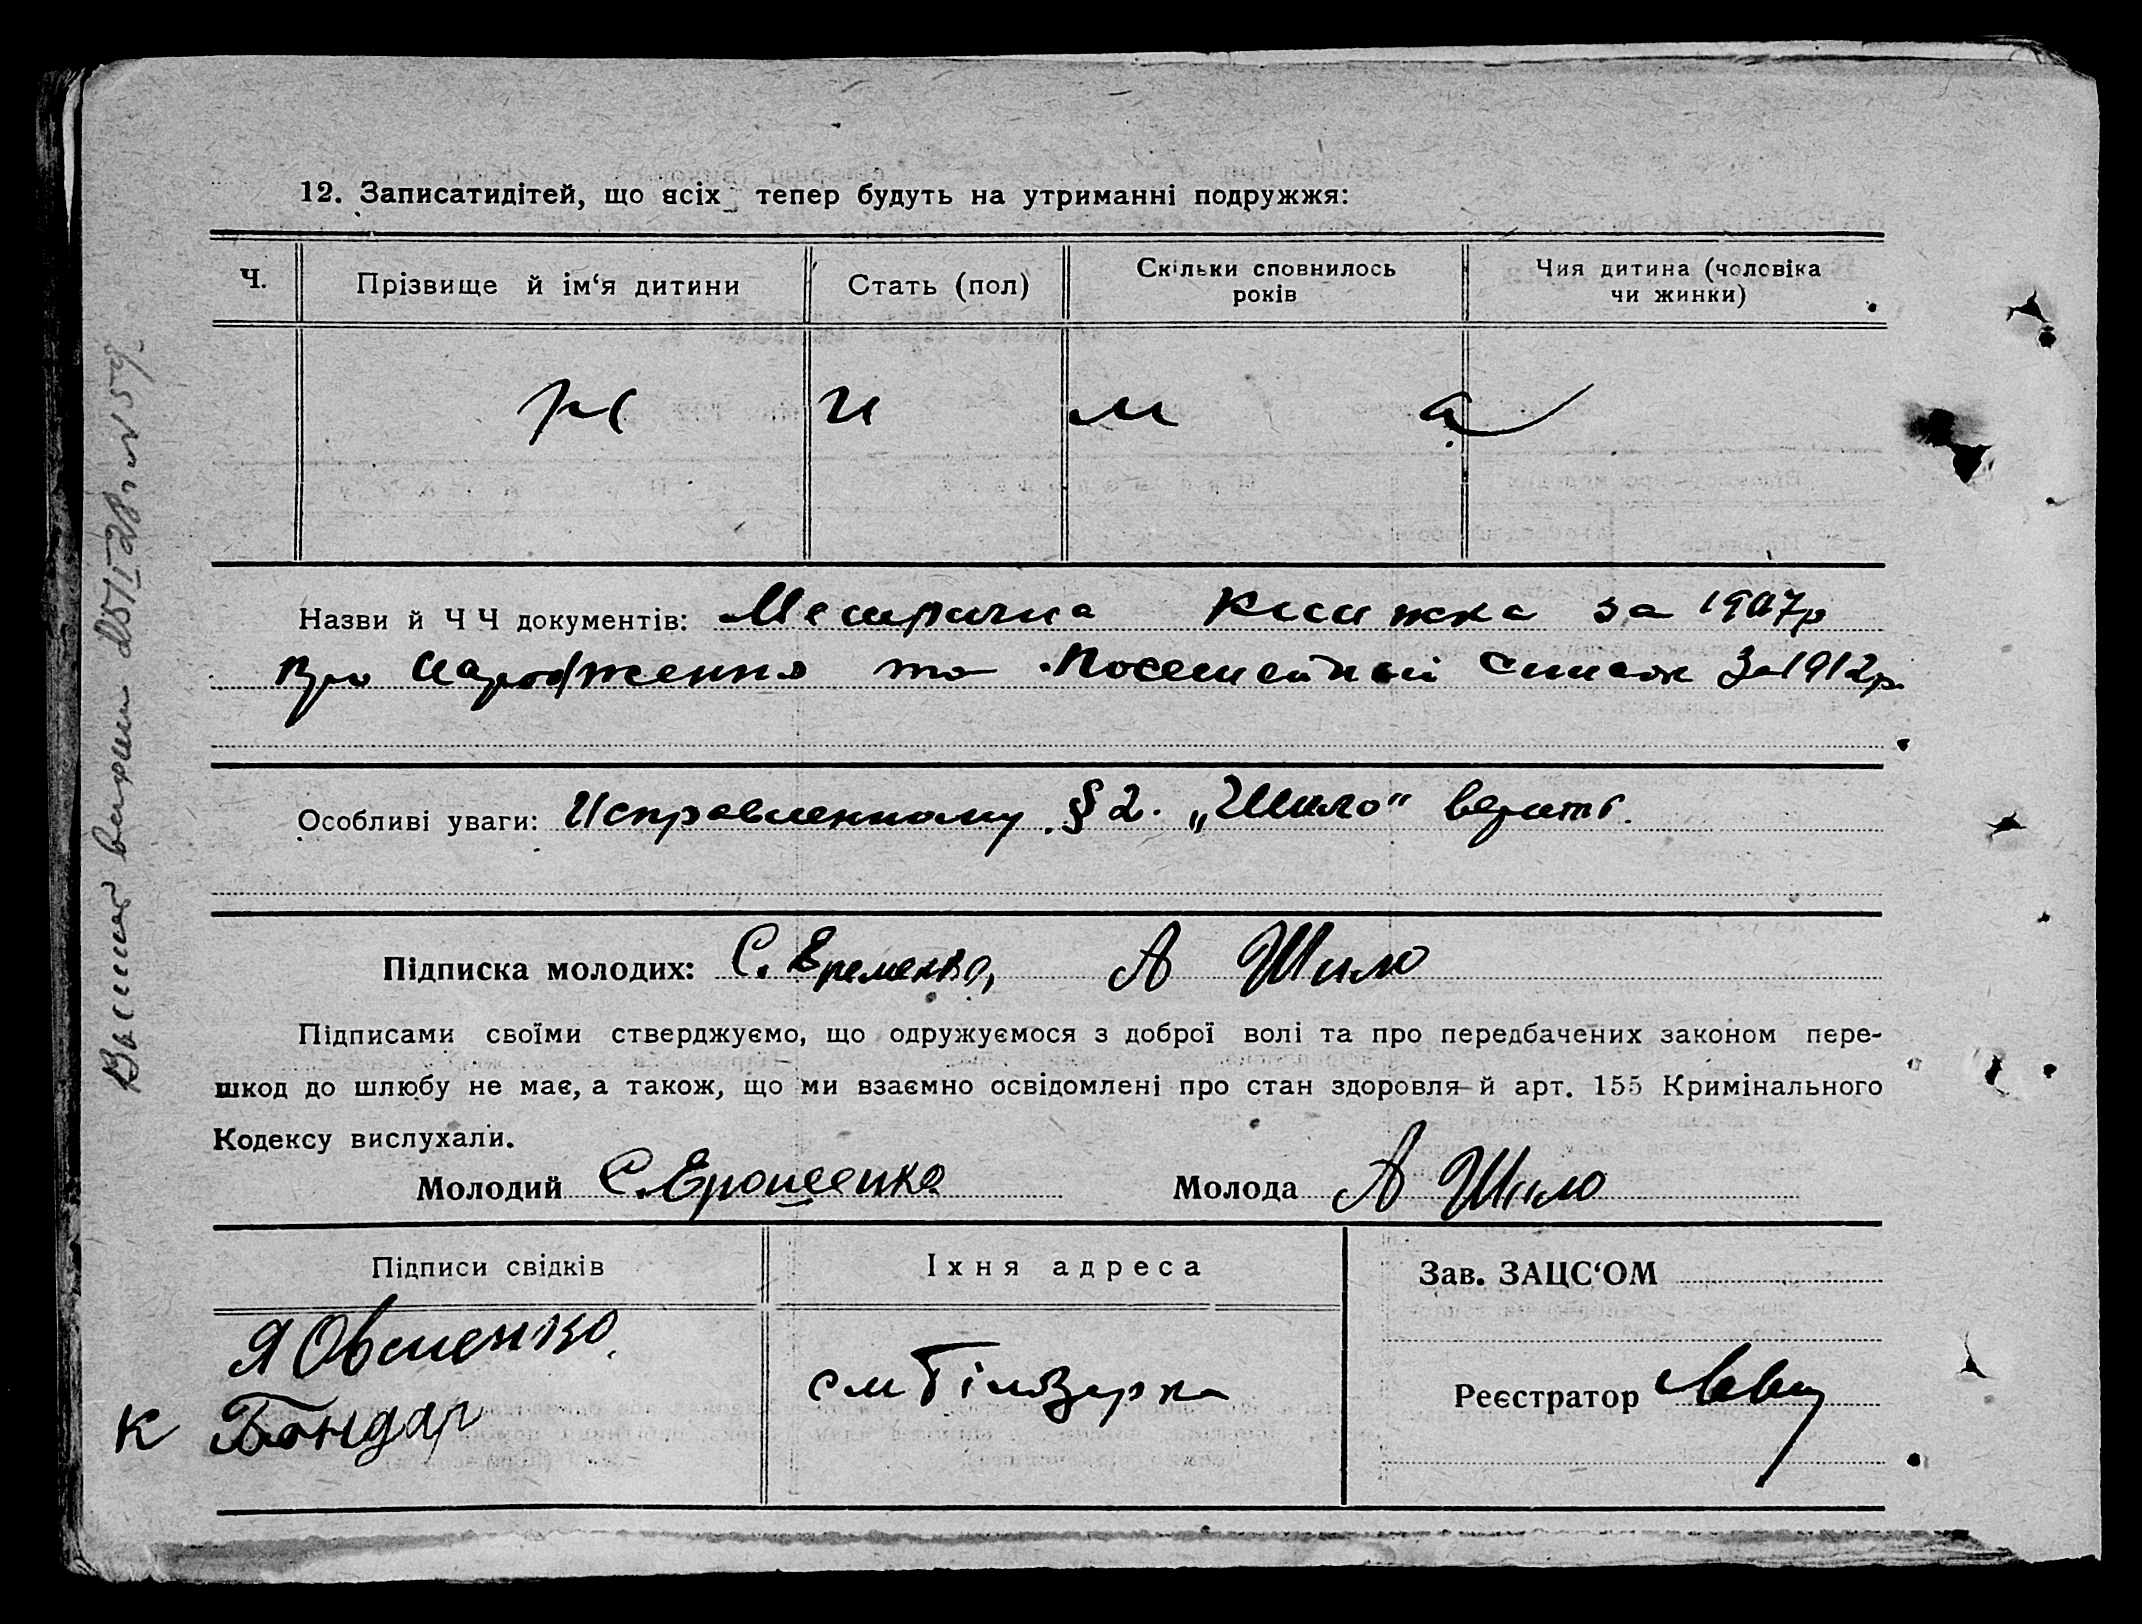 12. Записатидітей, що всіх тепер будуть на утриманні подружжя:
Ч.
Прізвище й ім‘я дитини
Стать (пол)
Скільки сповнилось
років
Чия дитина (чоловіка
чи жинки)
н и м а
Назви й ЧЧ документів: Метрична книжка за 1907р
про народження та Посемейный список за 1912р.
Особливі уваги: Исправленному §2. „Шило“ верить.
Підписка молодих: С. Еременко, А Шило
Підписами своїми стверджуємо, що одружуємося з доброї волі та про передбачених законом пере-
шкод до шлюбу не має, а також, що ми взаємно освідомлені про стан здоровля й арт. 155 Кримінального
Кодексу вислухали.
Молодий С. Молода А Шило
Підписи свідків
Іхня адреса
Зав. ЗАЦС‘ОМ
Я Овсиенко
к Бондар
см
Реєстратор